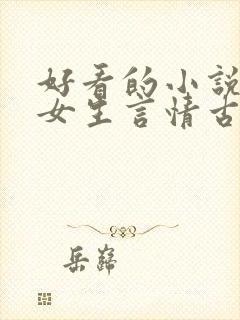 好看的小說
女生言情古
岳歸